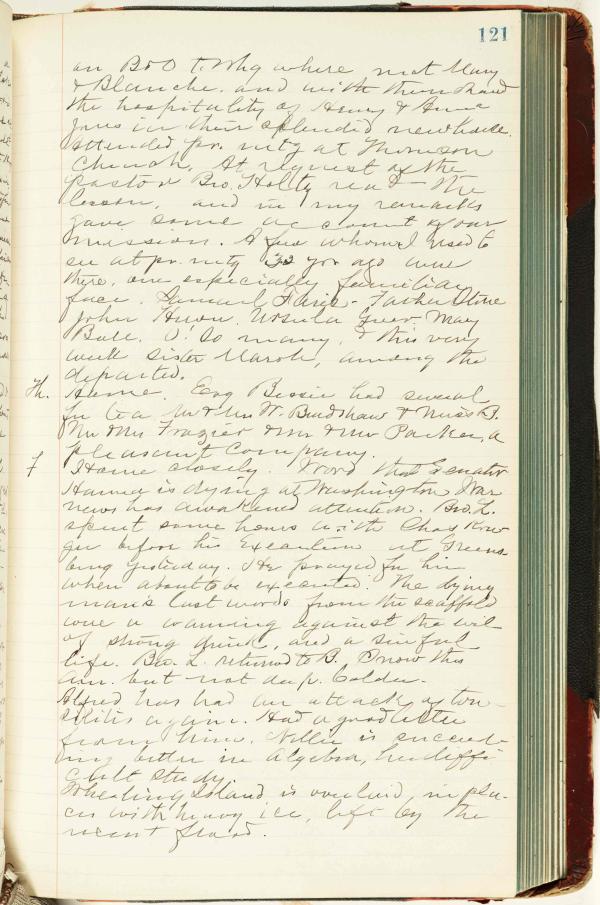 121
on B&O to Whg where met Mary
& Blanche. and with them shared
the hospitality of Henry & Anna
Jones in their splendid new house.
Attended pr. mtg at Thomson
Church. At request of the
pastor Bro. Holtz read the
lesson, and in my remarks
gave some account of our
mission. A few whom I used to
see at pr. mtg 32 yrs ago were
there, one especially familiar
face. Samuel Faris - Father Stone
John Ursula Greer May
Ball. O! so many, & this very
week sister Marsh, among the
departed.
Th. Home. Eng Bessie had several
for tea Mr & Mrs W. Bradshaw & Miss B.
Mr Mrs Frazier & Mr & Mrs Parker, a
pleasant company.
F Home closely. Word that Senator
Hanna is dying at Washington. War
news has awakened attention. Bro. L.
spent some hours with Chas
before his Execution at Greens-
burg yesterday. He prayed for him
when about to be executed. The dying
man's last words from the scaffold
were a warning against the evil
of strong drink, and a sinful
life. Bro. L. returned to B. Snow this
am. but not deep. Colder.
Alfred has had an attack of ton-
silitis again. Had a good letter
from him. Nellie is succeed-
ing better in Algebra, her diffi
cult study.
Wheeling Island is overlaid, in pla-
ces with heavy ice, left by the
recent flood.